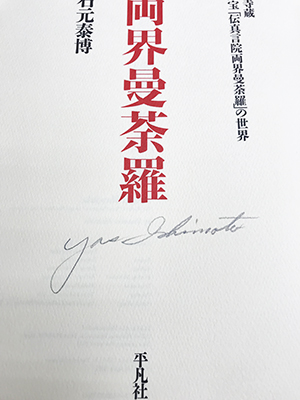 寺蔵
宝「伝真言院両界曼荼羅」の世界
両界曼荼羅
石元泰博
Yas Ishimoto
平凡社